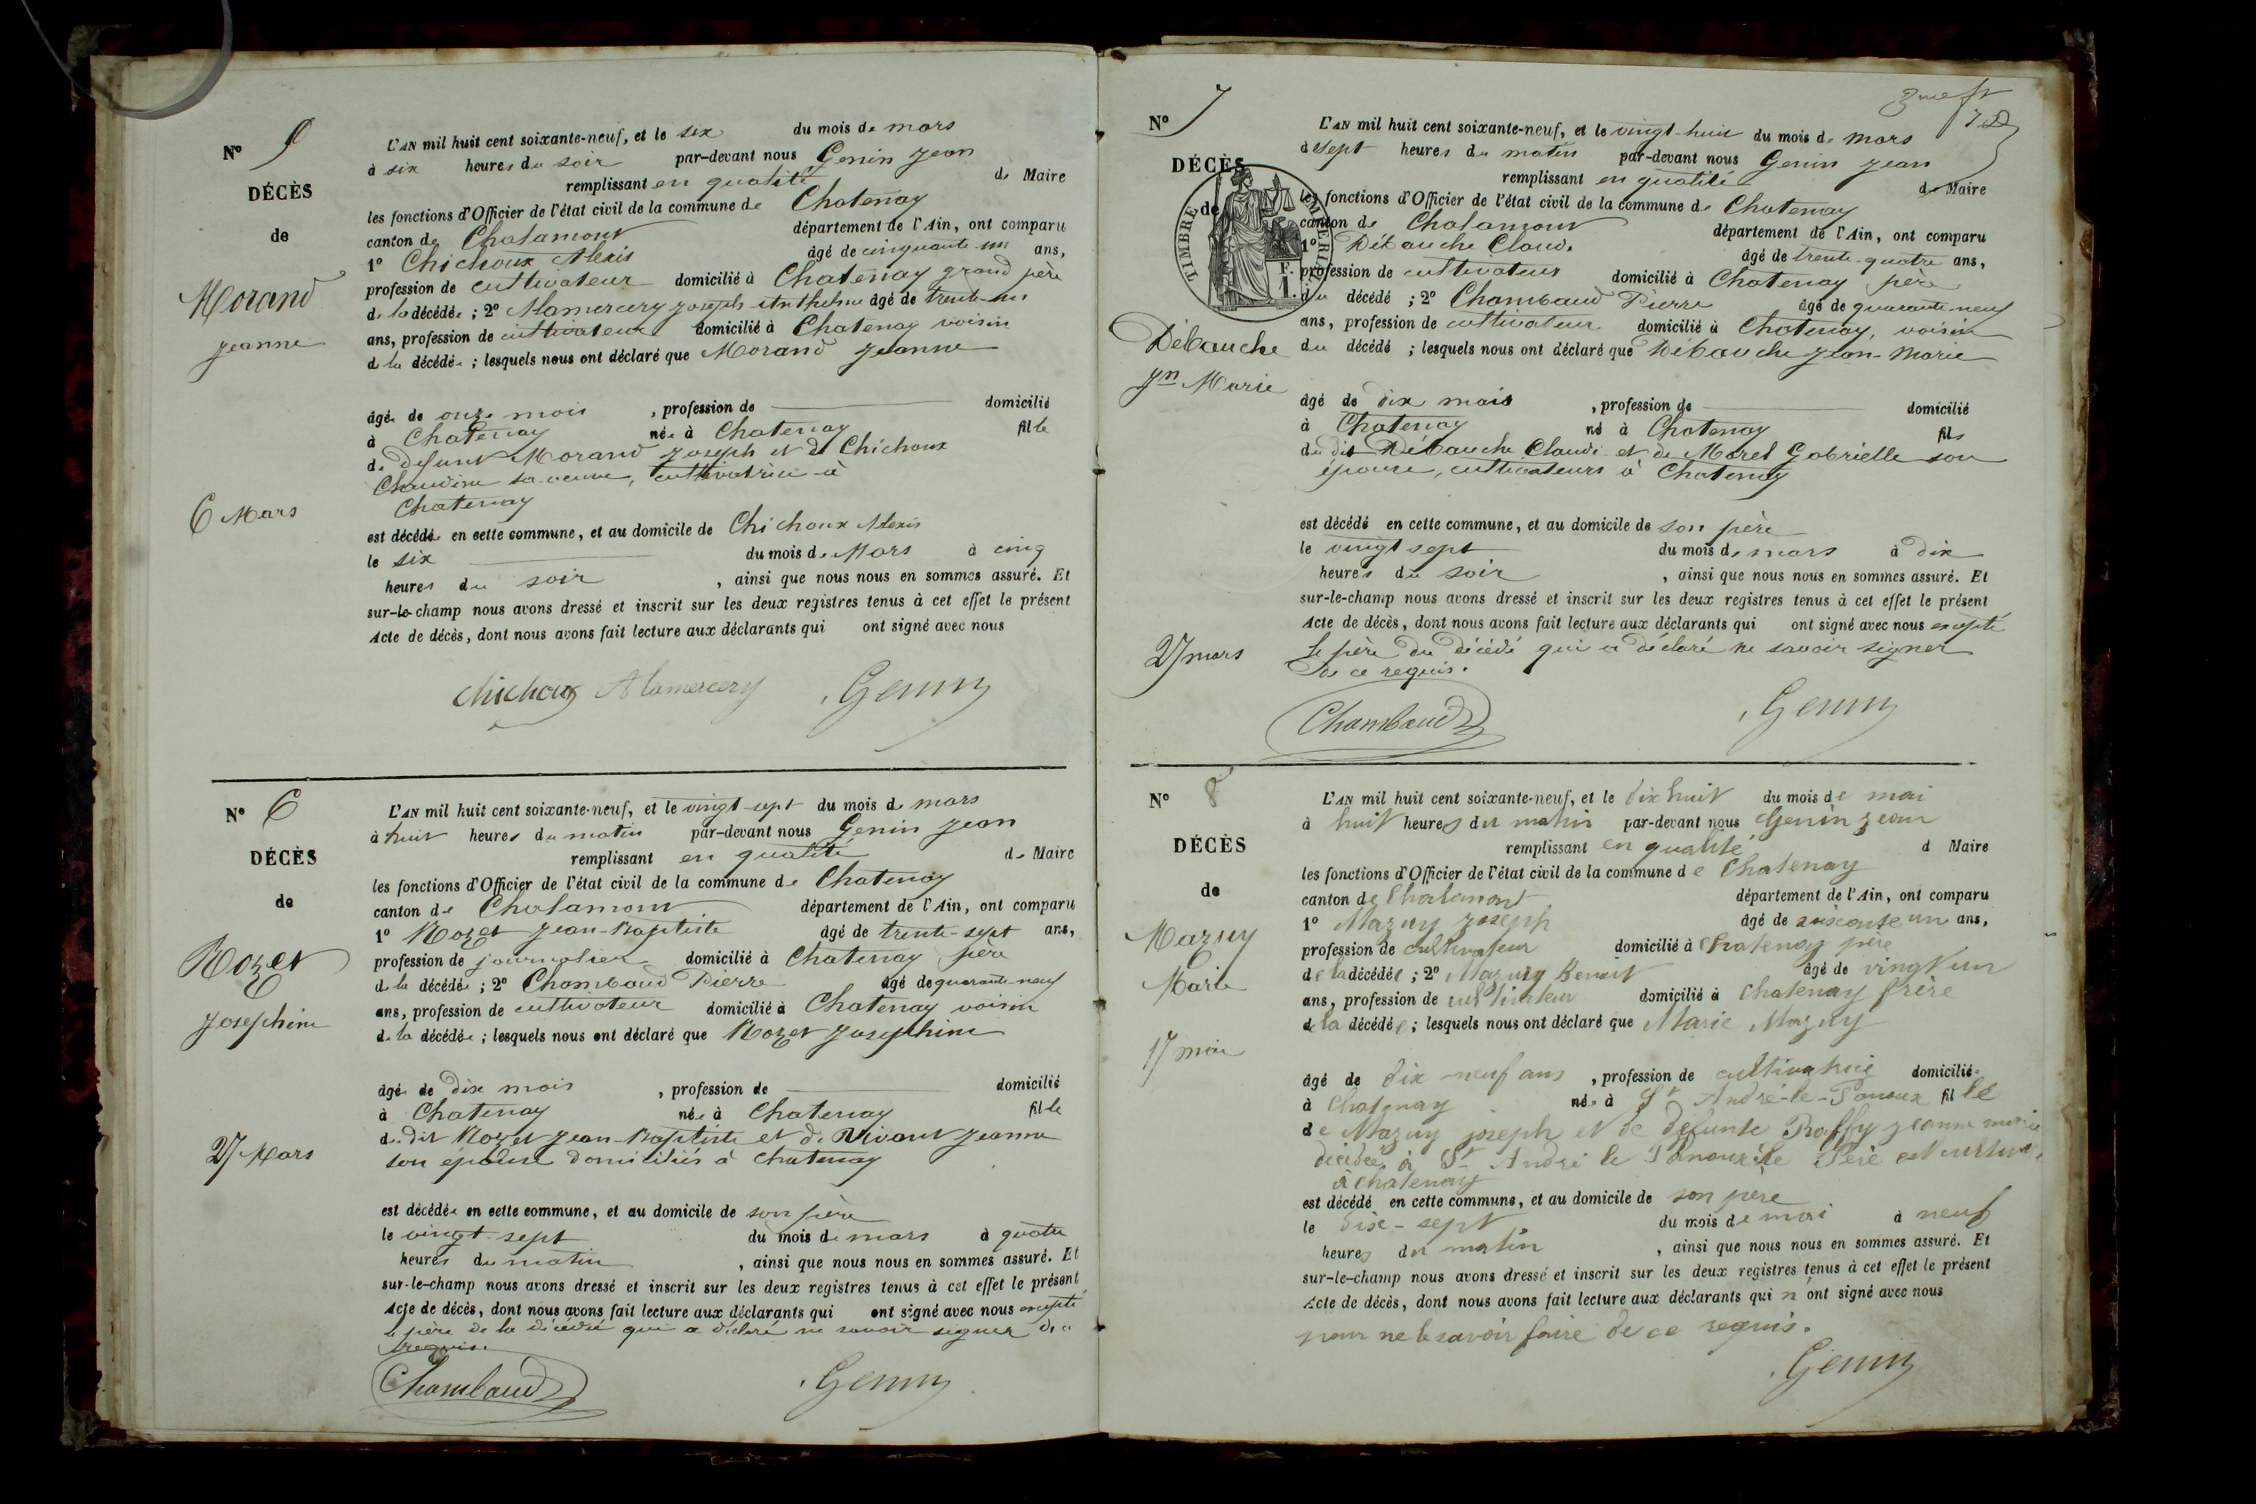 N° 5
DÉCÈS
de
Morand
Jeanne
6 Mars
L'AN mil huit cent soixante-neuf, et le six du mois de mars
à six heures du soir par-devant nous Genin Jean
remplissant en qualité de Maire
les fonctions d'Officier de l'état civil de la commune de Chatenay
canton de Chalamont département de l'Ain, ont comparu
1° Chichoux Alexis âgé de cinquante un ans,
profession de cultivateur domicilié à Chatenay grand père
de la décédée ; 2° Alamercery Joseph Anthelme âgé de trente-un
ans, profession de cultivateur domicilié à Chatenay voisin
de la décédée ; lesquels nous ont déclaré que Morand Jeanne
âgée de onze mois , profession de domicilié
à Chatenay née à Chatenay fille
de defunt Morand Joseph et de Chichoux
Claudine sa veuve, cultivatrice à
Chatenay
est décédée en cette commune, et au domicile de Chichoux Alexis
le six du mois de Mars à cinq
heures du soir , ainsi que nous nous en sommes assuré. Et
sur-le-champ nous avons dressé et inscrit sur les deux registres tenus à cet effet le présent
Acte de décès, dont nous avons fait lecture aux déclarants qui ont signé avec nous
Chichoux Alamercery Genin
N° 6
DÉCÈS
de
Rozet
Josephine
27 Mars
L'AN mil huit cent soixante-neuf, et le vingt-sept du mois de mars
à huit heures du matin par-devant nous Genin Jean
remplissant en qualité de Maire
les fonctions d'Officier de l'état civil de la commune de Chatenay
canton de Chalamont département de l'Ain, ont comparu
1° Rozet Jean-Baptiste âgé de trente-sept ans,
profession de journalier domicilié à Chatenay père
de la décédée ; 2° Chambaud Pierre âgé de quarante-neuf
ans, profession de cultivateur domicilié à Chatenay voisin
de la décédée ; lesquels nous ont déclaré que Rozet Josephine
âgée de dix mois , profession de domicilié
à Chatenay née à Chatenay fille
de dit Rozet Jean-Baptiste et de Jeanne
son épouse domiciliés à Chatenay
est décédée en cette commune, et au domicile de son père
le vingt-sept du mois de mars à quatre
heures du matin , ainsi que nous nous en sommes assuré. Et
sur-le-champ nous avons dressé et inscrit sur les deux registres tenus à cet effet le présent
Acte de décès, dont nous avons fait lecture aux déclarants qui ont signé avec nous excepté
le père de la décédée qui a déclaré ne savoir signer de ce
requis.
Chambaud Genin
7
N° 7
DÉCÈS
de
TIMBRE IMPÉRIAL
Débauche
Jn Marie
27 mars
L'AN mil huit cent soixante-neuf, et le vingt-huit du mois de mars
à sept heures du matin par-devant nous Genin Jean
remplissant en qualité de Maire
les fonctions d'Officier de l'état civil de la commune de Chatenay
canton de Chalamont département de l'Ain, ont comparu
1° Débauche Claude âgé de trente-quatre ans,
profession de cultivateur domicilié à Chatenay père
du décédé ; 2° Chambaud Pierre âgé de quarante-neuf
ans, profession de cultivateur domicilié à Chatenay, voisin
du décédé ; lesquels nous ont déclaré que Débauche Jean-Marie
âgé de dix mois , profession de domicilié
à Chatenay né à Chatenay fils
du dit Débauche Claude et de Morel Gabrielle son
épouse, cultivateurs à Chatenay
est décédé en cette commune, et au domicile de son père
le vingt sept du mois de mars à dix
heures du soir , ainsi que nous nous en sommes assuré. Et
sur-le-champ nous avons dressé et inscrit sur les deux registres tenus à cet effet le présent
Acte de décès, dont nous avons fait lecture aux déclarants qui ont signé avec nous excepté
le père du décédé qui a déclaré ne savoir signer
de ce requis.
Chambaud Genin
N° 8
DÉCÈS
de
Mazuy
Marie
17 mai
L'AN mil huit cent soixante-neuf, et le dix huit du mois de mai
à huit heures du matin par-devant nous Genin Jean
remplissant en qualité d Maire
les fonctions d'Officier de l'état civil de la commune de Chatenay
canton de Chalamont département de l'Ain, ont comparu
1° Mazuy Joseph âgé de soixante un ans,
profession de cultivateur domicilié à Chatenay père
de la décédée ; 2° Mazuy Benoit âgé de vingt un
ans, profession de cultivateur domicilié à Chatenay frère
de la décédée ; lesquels nous ont déclaré que Marie Mazuy
âgé de dix neuf ans , profession de cultivatrice domiciliée
à Chatenay née à St André-le-Panoux fille
de Mazuy Joseph et de defunte Raffy Jeanne marie
décédée à St André le Panoux le Père est cultivat.
à Chatenay
est décédé en cette commune, et au domicile de son père
le dix-sept du mois de mai à neuf
heures du matin , ainsi que nous nous en sommes assuré. Et
sur-le-champ nous avons dressé et inscrit sur les deux registres tenus à cet effet le présent
Acte de décès, dont nous avons fait lecture aux déclarants qui n ont signé avec nous
pour ne le savoir faire de ce requis.
Genin